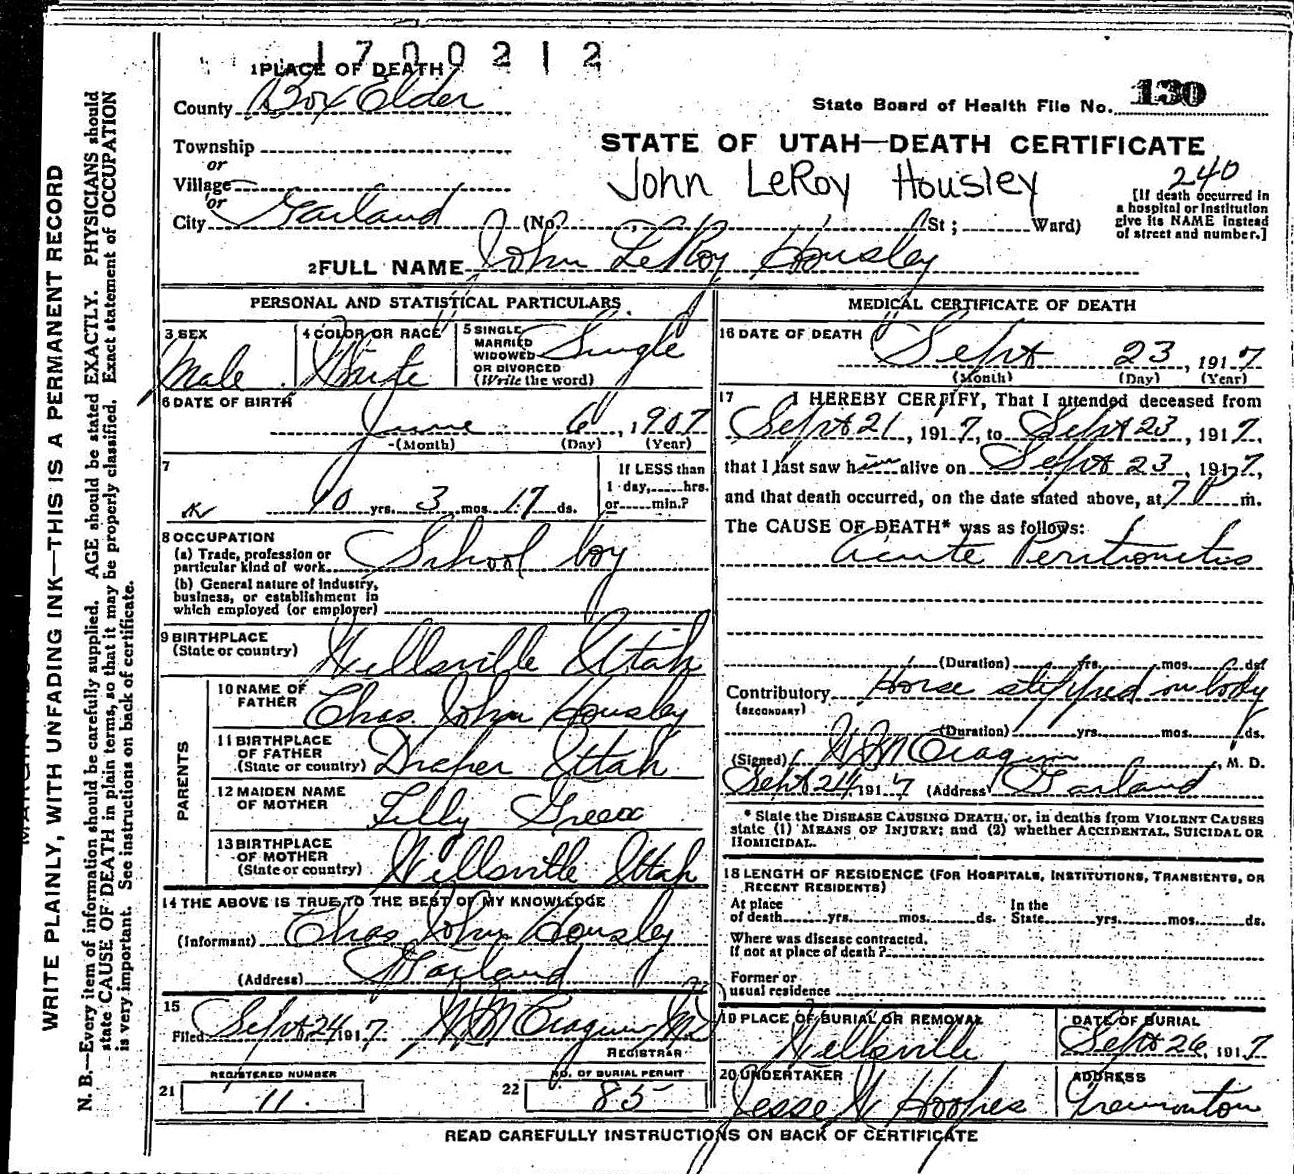 1700212
1 PLACE OF DEATH
County Box Elder
State Board of Health File No. 130
Township
or
Village
or
City Garland (No. St; Ward)
STATE OF UTAH—DEATH CERTIFICATE
John LeRoy Housley
240
[If death occurred in
a hospital or institution
give its NAME instead
of street and number.]
2 FULL NAME John LeRoy Housley
PERSONAL AND STATISTICAL PARTICULARS
3 SEX
Male
4 COLOR OR RACE
White
5 SINGLE
MARRIED
WIDOWED
OR DIVORCED
(Write the word)
Single
6 DATE OF BIRTH
June 6, 1907
(Month) (Day) (Year)
7
10 yrs. 3 mos. 17 ds.
If LESS than
1 day, hrs.
or min.?
8 OCCUPATION
(a) Trade, profession or
particular kind of work School boy
(b) General nature of industry,
business, or establishment in
which employed (or employer)
9 BIRTHPLACE
(State or country) Wellsville Utah
PARENTS
10 NAME OF
FATHER Chas. John Housley
11 BIRTHPLACE
OF FATHER
(State or country) Draper Utah
12 MAIDEN NAME
OF MOTHER Lilly
13 BIRTHPLACE
OF MOTHER
(State or country) Wellsville Utah
14 THE ABOVE IS TRUE TO THE BEST OF MY KNOWLEDGE
(Informant) Chas John Housley
(Address) Garland
15
Filed Sept 24 1917. W M Cragun MD
REGISTRAR
REGISTERED NUMBER
21 11.
NO. OF BURIAL PERMIT
22 85
MEDICAL CERTIFICATE OF DEATH
16 DATE OF DEATH
Sept 23, 1917
(Month) (Day) (Year)
17 I HEREBY CERTIFY, That I attended deceased from
Sept 21, 1917, to Sept 23, 1917,
that I last saw him alive on Sept 23, 1917,
and that death occurred, on the date stated above, at 7 P m.
The CAUSE OF DEATH* was as follows:
Acute Peritonitis
(Duration) yrs. mos. ds.
Contributory Horse stepped on body
(SECONDARY)
(Duration) yrs. mos. ds.
(Signed) W M Cragun, M. D.
Sept 24, 1917 (Address) Garland
* State the DISEASE CAUSING DEATH, or, in deaths from VIOLENT CAUSES
state (1) MEANS OF INJURY; and (2) whether ACCIDENTAL, SUICIDAL OR
HOMICIDAL.
18 LENGTH OF RESIDENCE (FOR HOSPITALS, INSTITUTIONS, TRANSIENTS, OR
RECENT RESIDENTS)
At place In the
of death yrs. mos. ds. State yrs. mos. ds.
Where was disease contracted.
If not at place of death?
Former or
usual residence
19 PLACE OF BURIAL OR REMOVAL
Wellsville
DATE OF BURIAL
Sept 26, 1917
20 UNDERTAKER
Jesse W Hoopes
ADDRESS
Tremonton
READ CAREFULLY INSTRUCTIONS ON BACK OF CERTIFICATE
WRITE PLAINLY, WITH UNFADING INK—THIS IS A PERMANENT RECORD
N. B.—Every item of information should be carefully supplied. AGE should be stated EXACTLY. PHYSICIANS should
state CAUSE OF DEATH in plain terms, so that it may be properly classified. Exact statement of OCCUPATION
is very important. See instructions on back of certificate.